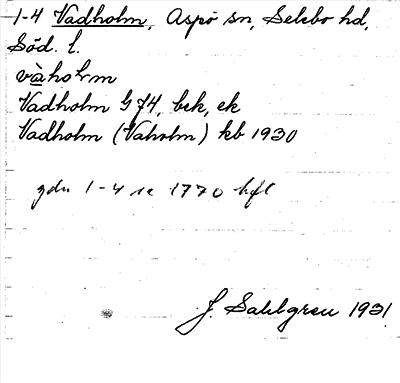 1-4 Vadholm, Aspö sn, Selebo hd,
Söd. l.
vàholm
Vadholm G 74, bek, ek
Vadholm (Vaholm) kb 1930
gdn 1-4 se 1770 hfl
J. Sahlgren 1931